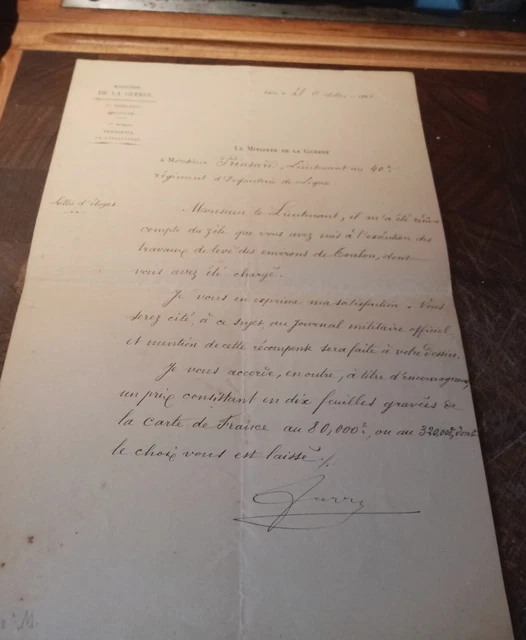 MINISTÈRE
DE LA GUERRE.
LE MINISTRE DE LA GUERRE
à Monsieur Lieutenant au 40e
régiment d'Infanterie de Ligne.
Lettre d'éloges.
Monsieur le Lieutenant, il m'a été rendu
compte du zèle que vous avez mis à l'exécution des
travaux de levé des environs de Toulon, dont
vous avez été chargé.
Je vous en exprime ma satisfaction. Vous
serez cité, à ce sujet, au Journal militaire officiel,
et mention de cette récompense sera faite à votre dossier.
Je vous accorde, en outre, à titre d'encouragement,
un prix consistant en dix feuilles gravées de
la carte de France au 80,000e, ou au 320,000e, dont
le choix vous est laissé ./.